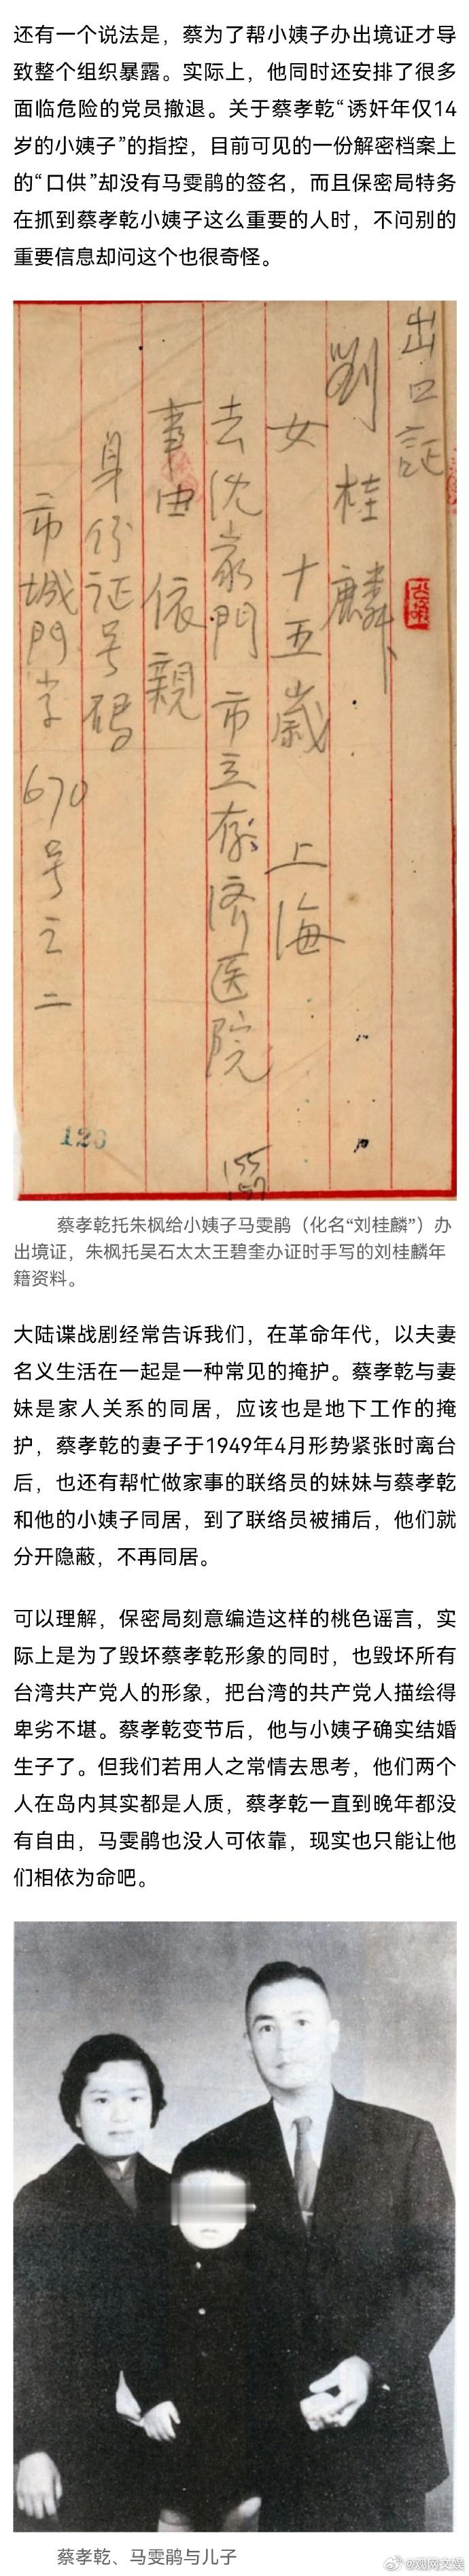 还有一个说法是，蔡为了帮小姨子办出境证才导
致整个组织暴露。实际上，他同时还安排了很多
面临危险的党员撤退。关于蔡孝乾“诱奸年仅14
岁的小姨子”的指控，目前可见的一份解密档案上
的“口供”却没有马雯鹃的签名，而且保密局特务
在抓到蔡孝乾小姨子这么重要的人时，不问别的
重要信息却问这个也很奇怪。
出口証
劉桂麟
女 十五歲 上海
去沈家門 市立存济医院
事由 依親
身份证号码
市城門字 670号之二
120
蔡孝乾托朱枫给小姨子马雯鹃（化名“刘桂麟”）办
出境证，朱枫托吴石太太王碧奎办证时手写的刘桂麟年
籍资料。
大陆谍战剧经常告诉我们，在革命年代，以夫妻
名义生活在一起是一种常见的掩护。蔡孝乾与妻
妹是家人关系的同居，应该也是地下工作的掩
护，蔡孝乾的妻子于1949年4月形势紧张时离台
后，也还有帮忙做家事的联络员的妹妹与蔡孝乾
和他的小姨子同居，到了联络员被捕后，他们就
分开隐蔽，不再同居。
可以理解，保密局刻意编造这样的桃色谣言，实
际上是为了毁坏蔡孝乾形象的同时，也毁坏所有
台湾共产党人的形象，把台湾的共产党人描绘得
卑劣不堪。蔡孝乾变节后，他与小姨子确实结婚
生子了。但我们若用人之常情去思考，他们两个
人在岛内其实都是人质，蔡孝乾一直到晚年都没
有自由，马雯鹃也没人可依靠，现实也只能让他
们相依为命吧。
蔡孝乾、马雯鹃与儿子
@观网文娱